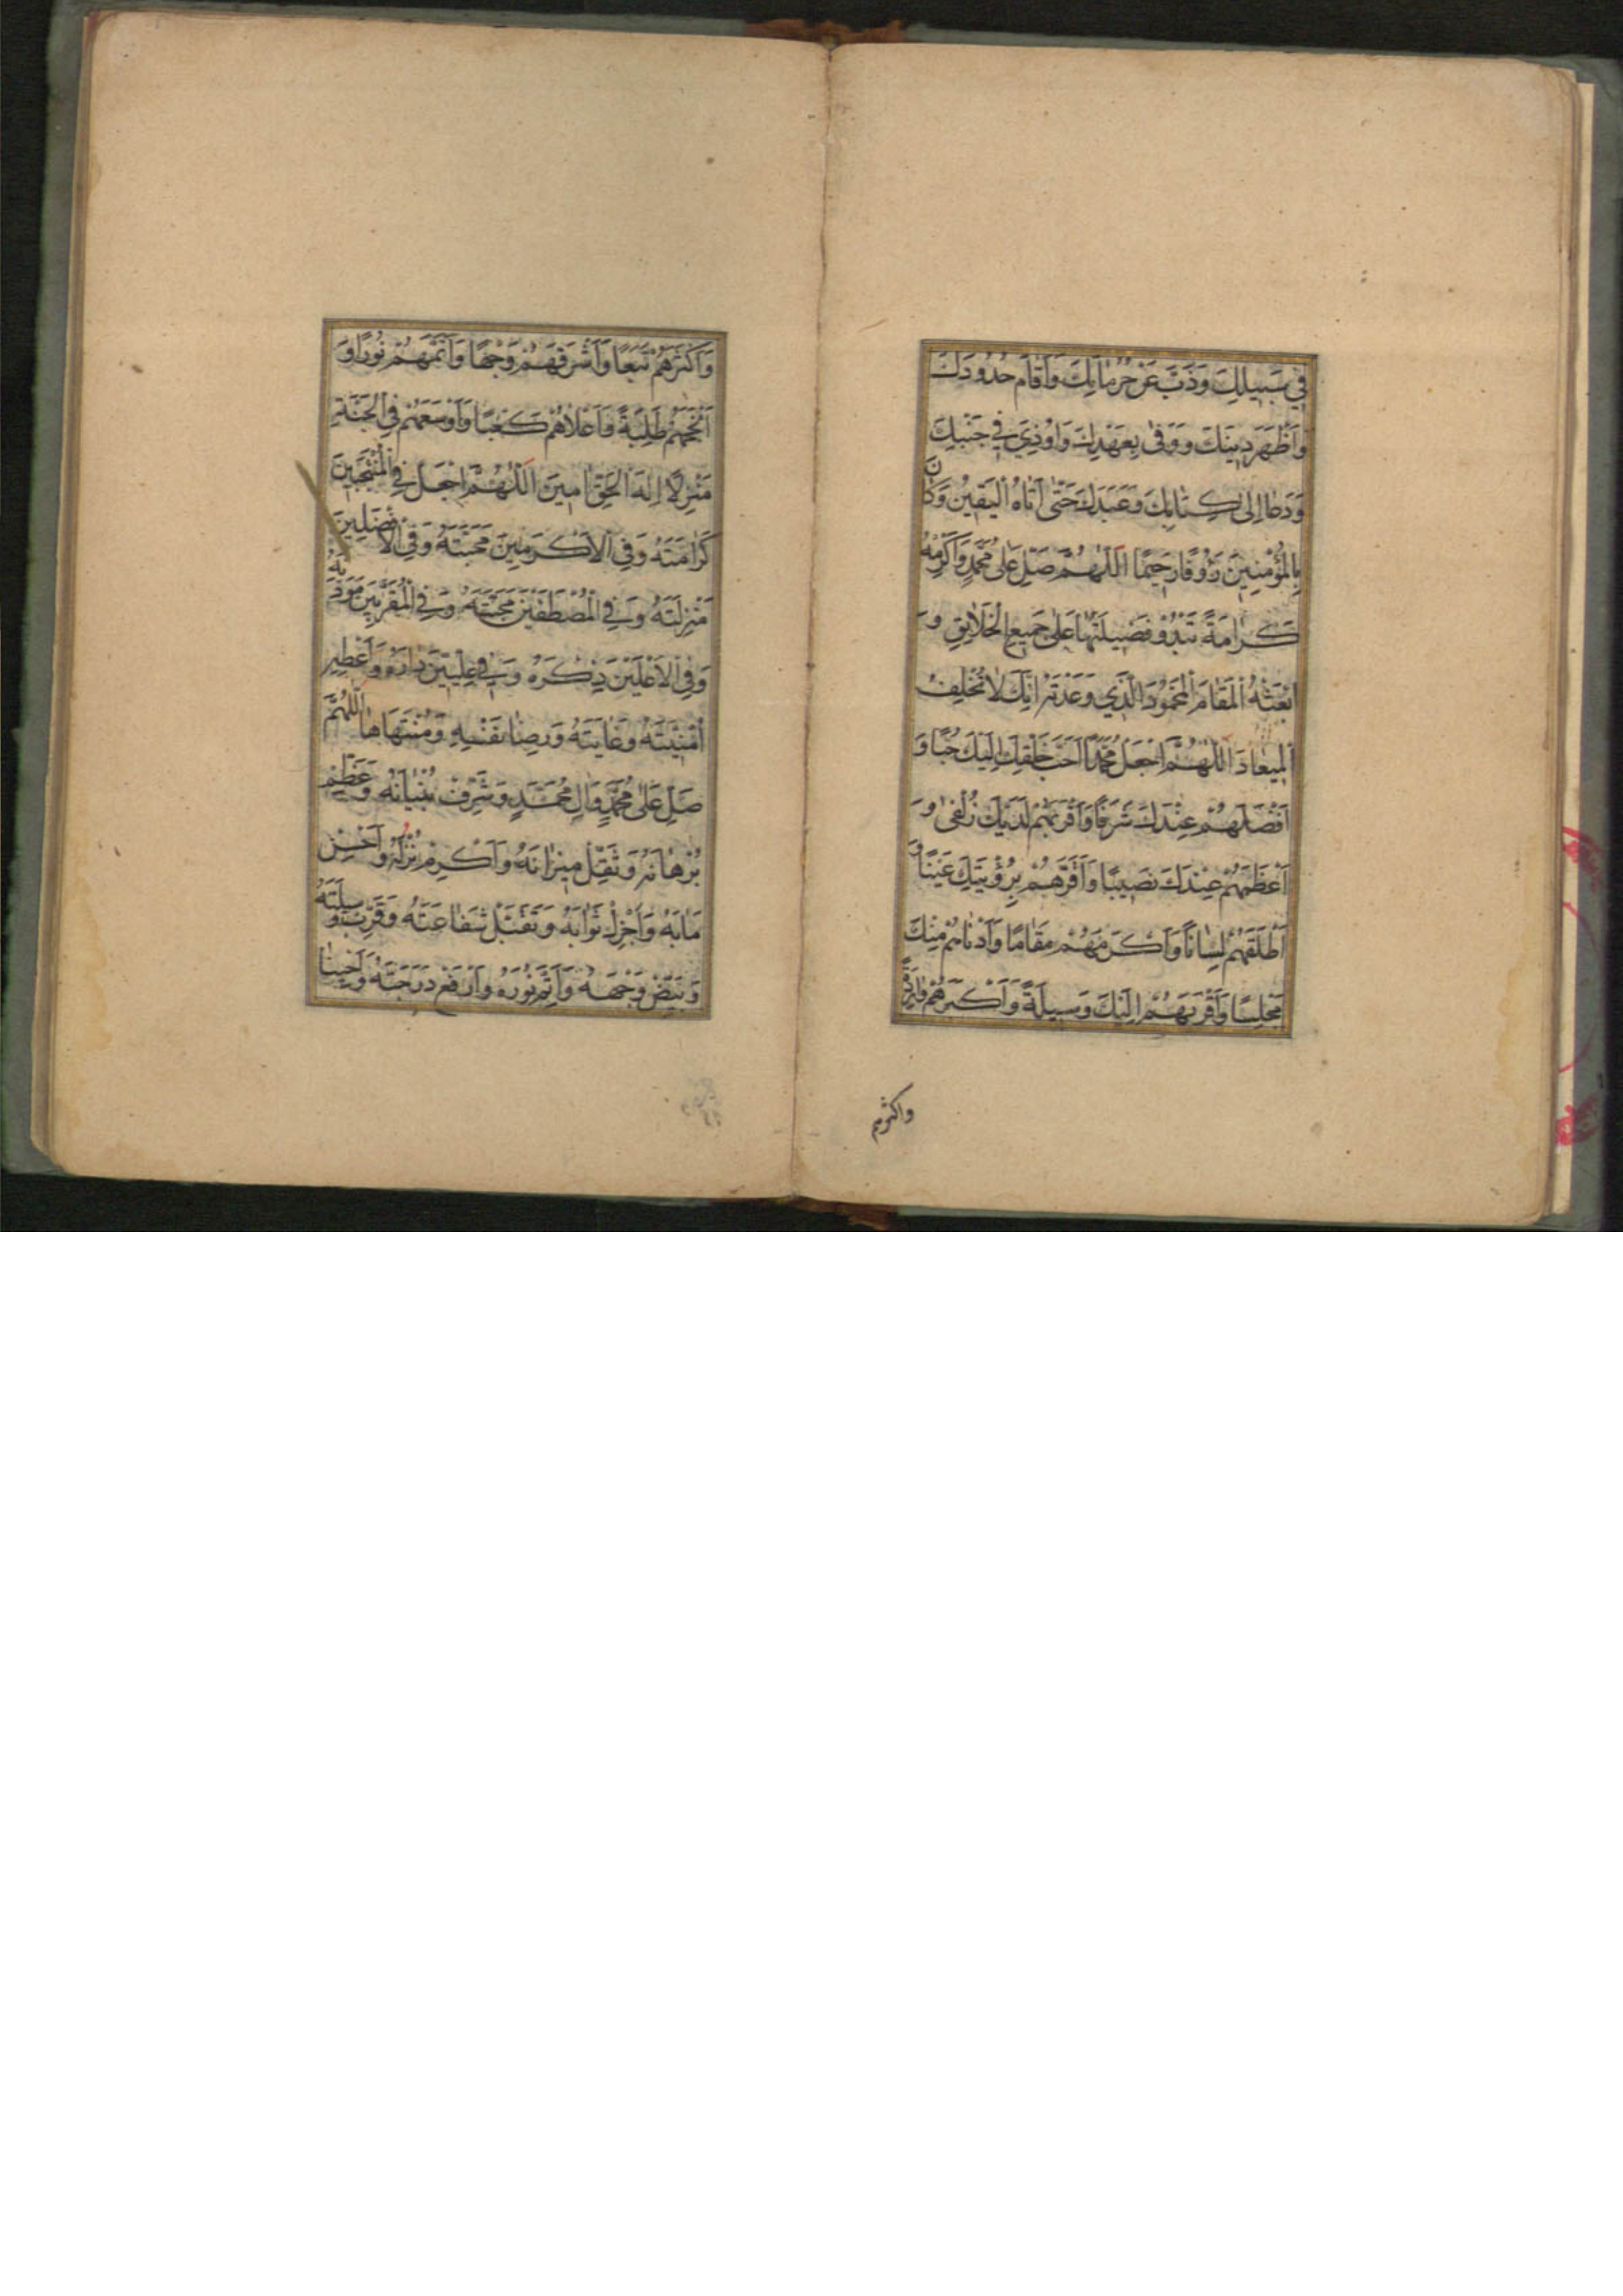 فِي سَبِيلِكَ وَذَبَّ عَنْ حُرُمَاتِكَ وَأَقَامَ حُدُودَكَ
وَأَظْهَرَ دِينَكَ وَوَفَى بِعَهْدِكَ وَأُوذِيَ فِي جَنْبِكَ
وَدَعَا إِلَى كِتَابِكَ وَعَبَدَكَ حَتَّى أَتَاهُ الْيَقِينُ وَكَانَ
بِالْمُؤْمِنِينَ رَؤُوفًا رَحِيمًا اللّٰهُمَّ صَلِّ عَلَى مُحَمَّدٍ وَأَكْرِمْهُ
كَرَامَةً تَبْدُو فَضِيلَتُهَا عَلَى جَمِيعِ الْخَلَايِقِ وَ
ابْعَثْهُ الْمَقَامَ الْمَحْمُودَ الَّذِي وَعَدْتَهُ إِنَّكَ لَا تُخْلِفُ
الْمِيعَادَ اللّٰهُمَّ اجْعَلْ مُحَمَّدًا أَحَبَّ خَلْقِكَ إِلَيْكَ حُبًّا وَ
أَفْضَلَهُمْ عِنْدَكَ شَرَفًا وَأَقْرَبَهُمْ لَدَيْكَ زُلْفَى وَ
أَعْظَمَهُمْ عِنْدَكَ نَصِيبًا وَأَقَرَّهُمْ بِرُؤْيَتِكَ عَيْنًا وَ
أَطْلَقَهُمْ لِسَانًا وَأَكْرَمَهُمْ مَقَامًا وَأَدْنَاهُمْ مِنْكَ
مَجْلِسًا وَأَقْرَبَهُمْ إِلَيْكَ وَسِيلَةً وَأَكْبَرَهُمْ
واكثرهم
وَأَكْثَرَهُمْ تَبَعًا وَأَشْرَفَهُمْ وَجْهًا وَأَتَمَّهُمْ نُورًا وَ
أَنْجَحَهُمْ طَلِبَةً وَأَعْلَاهُمْ كَعْبًا وَأَوْسَعَهُمْ فِي الْجَنَّةِ
مَنْزِلًا إِلٰهَ الْحَقِّ آمِينَ اللّٰهُمَّ اجْعَلْ فِي الْمُنْتَجَبِينَ
كَرَامَتَهُ وَفِي الْأَكْرَمِينَ مَحَبَّتَهُ وَفِي الْأَفْضَلِينَ
مَنْزِلَتَهُ وَفِي الْمُصْطَفَيْنَ مَحَبَّتَهُ وَفِي الْمُقَرَّبِينَ مَوَدَّتَهُ
وَفِي الْأَعْلَيْنَ ذِكْرَهُ وَفِي عِلِّيِّينَ دَارَهُ وَأَعْطِهِ
أُمْنِيَّتَهُ وَغَايَتَهُ وَرِضَا نَفْسِهِ وَمُنْتَهَاهَا اللّٰهُمَّ
صَلِّ عَلَى مُحَمَّدٍ وَآلِ مُحَمَّدٍ وَشَرِّفْ بُنْيَانَهُ وَعَظِّمْ
بُرْهَانَهُ وَثَقِّلْ مِيزَانَهُ وَأَكْرِمْ نُزُلَهُ وَأَحْسِنْ
مَآبَهُ وَأَجْزِلْ ثَوَابَهُ وَتَقَبَّلْ شَفَاعَتَهُ وَقَرِّبْ وَسِيلَتَهُ
وَبَيِّضْ وَجْهَهُ وَأَتِمَّ نُورَهُ وَارْفَعْ دَرَجَتَهُ وَأَحْيِنَا